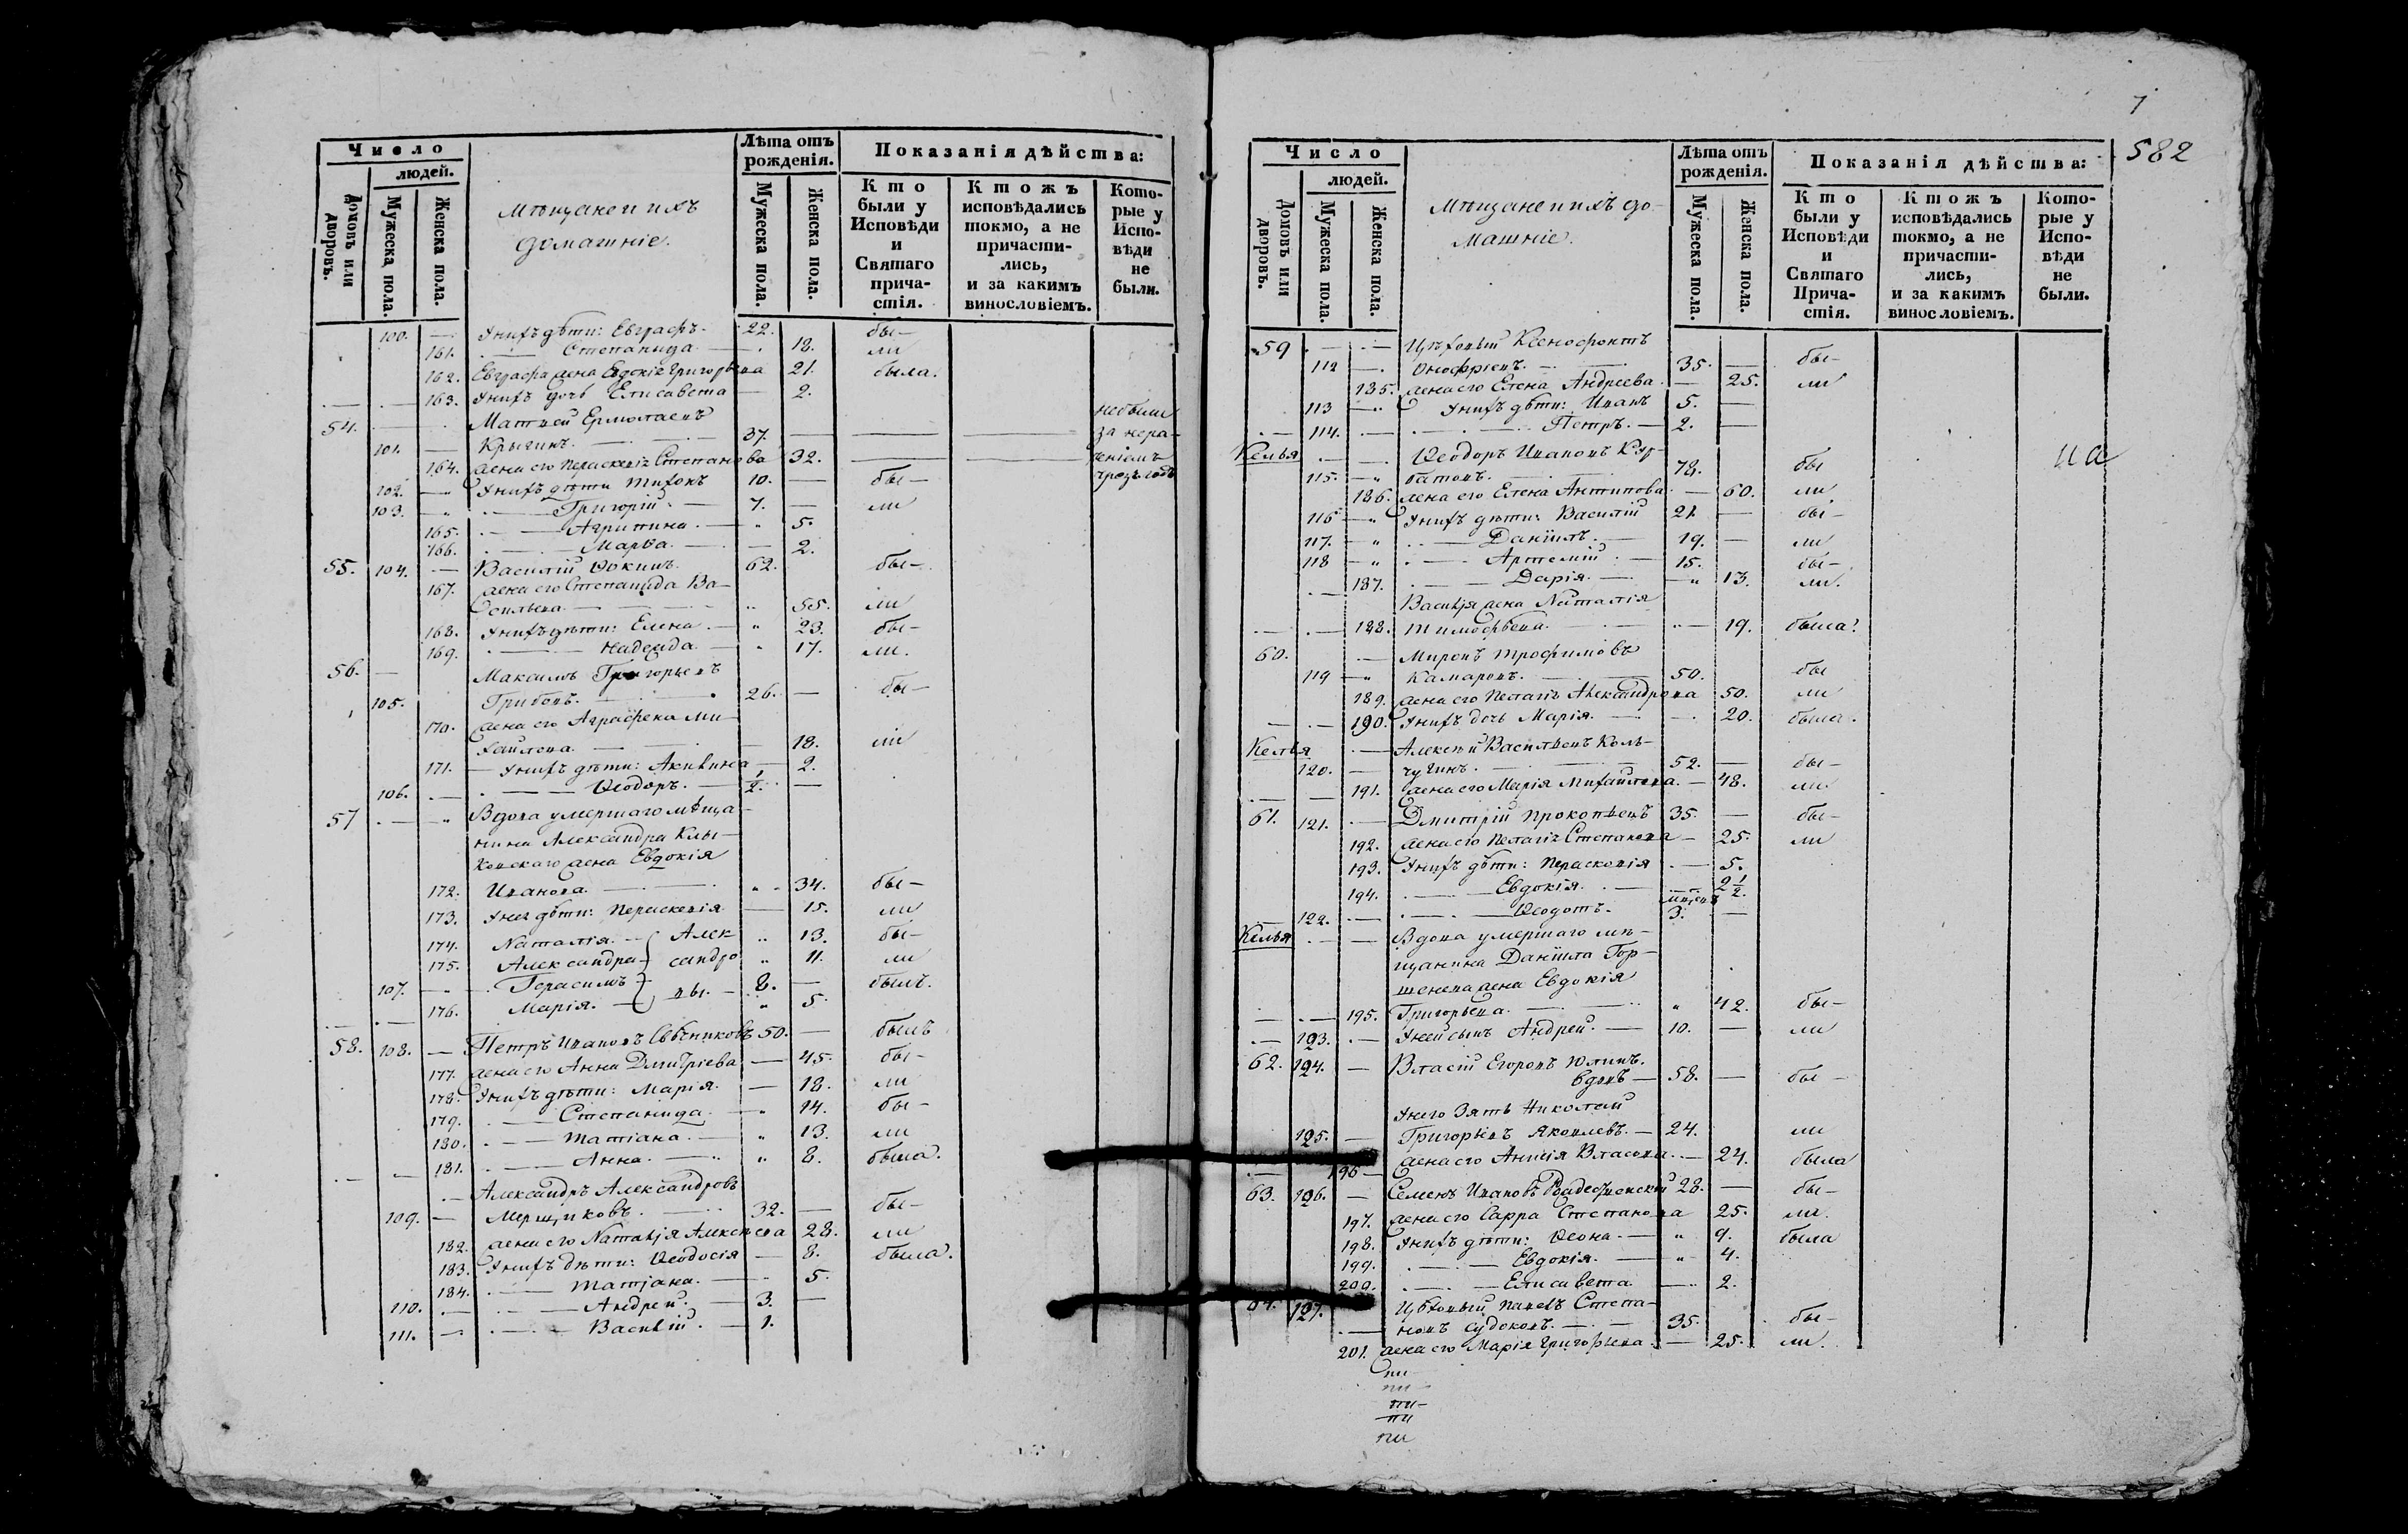 Число
людей.
Домовъ или дворовъ.
Мужеска пола.
Женска пола.
Мѣщане и ихъ
домашніе.
Лѣта отъ
рожденія.
Мужеска пола.
Женска пола.
Показанія дѣйства:
Кто
были у
Исповѣди
и
Святаго
прича-
стія.
Ктожъ
исповѣдались
токмо, а не
причасти-
лись,
и за какимъ
винословіемъ.
Кото-
рые у
Испо-
вѣди
не
были.
100. — Унихъ дѣти: Евграфъ. 22. бы-
161. — Степанида — 18. ли
162. Евграфа жена Евдокія Григорьева 21. была.
163. Унихъ дочь Елисавета — 2.
54. Матвей Ермолаевъ небыли
101. — Крыгинъ. 37. — за нера-
164. жена его Параскевія Степанова 32. — деніемъ
102. — Унихъ дѣти Тихонъ 10. — бы-
103. — Григорій — 7. — ли
165. — Агрипина. — 5.
166. — Марѳа. — 2.
55. 104. — Василій Ѳокинъ. 62. бы-
167. жена его Степанида Ва-
сильева — 55. ли
168. Унихъ дѣти: Елена. — 23. бы-
169. — Надежда — 17. ли.
56. — Максимъ Григорьевъ
105. Грибовъ. 26. — бы-
170. жена его Аграфена Ми-
хайлова — 18. ли
171. — Унихъ дѣти: Акилина — 2.
106. — Ѳеодоръ. — 1/2. —
57 — Вдова умершаго мѣща-
нина Александра Клы-
ковскаго жена Евдокія
172. Иванова — 34. бы-
173. Унея дѣти: Параскевія — 15. ли
174. Наталія. — Алек 13. бы-
175. Александра — сандро 11. ли
107. — Герасимъ — вы. — 8. — былъ.
176. Марія. — 5.
58. 108. — Петръ Ивановъ Свѣчниковъ 50. — былъ
177. жена его Анна Дмитріева — 45. бы-
178. Унихъ дѣти: Марія. — 18. ли
179. — Степанида — 14. бы-
180. — Татіана. — 13. ли
181. — Анна. — 8. была.
— Александръ Александровъ
109. — Мерщиковъ. 32. — бы-
182. жена его Наталія Алексѣева 28. ли
183. Унихъ дѣти: Ѳеодосія — 8. была.
184. — Татіана. — 5.
110. — Андрей. — 3. —
111. — Василій. — 1.
7
582
Число
людей.
Домовъ или дворовъ.
Мужеска пола.
Женска пола.
Мѣщане и ихъ до-
машніе.
Лѣта отъ
рожденія.
Мужеска пола.
Женска пола.
Показанія дѣйства:
Кто
были у
Исповѣди
и
Святаго
Прича-
стія.
Ктожъ
исповѣдались
токмо, а не
причасти-
лись,
и за какимъ
винословіемъ.
Кото-
рые у
Испо-
вѣди
не
были.
59 — Цѣховый Ксенофонтъ
112 — Онофріевъ. 35. — бы-
185. жена его Елена Андреева. — 25. ли
113 — Унихъ дѣти: Иванъ 5. —
114. — Петръ. — 2. —
Келья — Ѳеодоръ Ивановъ Кур-
115. — батовъ. 78. бы
186. жена его Елена Антипова. — 60. ли
116 — Унихъ дѣти: Василій 21. — бы-
117. — Даніилъ. — 19. — ли
118 — Артемій — 15. бы-
187. — Дарія. — 13. ли.
Василія жена Наталія
188. Тимофѣева. — 19. была.
60. — Миронъ Трофимовъ
119 — Камаровъ. 50. бы
189. жена его Пелагія Александрова 50. ли
190. Унихъ дочь Марія. — 20. была.
Келья — Алексѣй Васильевъ Коль-
120. — чугинъ. 52. — бы-
191. жена его Марія Михайлова. — 48. ли.
61. 121. — Дмитрій Прокопьевъ 35. — бы-
192. жена его Пелагія Степанова — 25. ли
193. Унихъ дѣти: Параскевія — 5.
194. — Евдокія. — 2 1/2.
122. — Ѳеодотъ. 3. —
Келья — Вдова умершаго мѣ-
щанина Даніила Гор-
шенева жена Евдокія
195. Григорьева. — 42. бы-
123. — Унея сынъ Андрей. — 10. — ли
62. 124. — Власій Егоровъ Юлинъ.
вдовъ — 58. — бы-
Унего зять Николай
125. — Григорьевъ Яковлевъ. — 24. ли
196 — жена его Анисія Власова. — 24. была
63. 126. — Семенъ Ивановъ 28. — бы-
197. жена его Сарра Степанова 25. ли.
198. Унихъ дѣти: Ѳеона. — 9. была
199. — Евдокія. — 4.
200. — Елисавета. — 2.
64. 127. Цѣховый Павелъ Степа-
— новъ Судоковъ. — 35. бы-
201. жена его Марія Григорьева. — 25. ли.
пи
пи
пи-
пи
пи